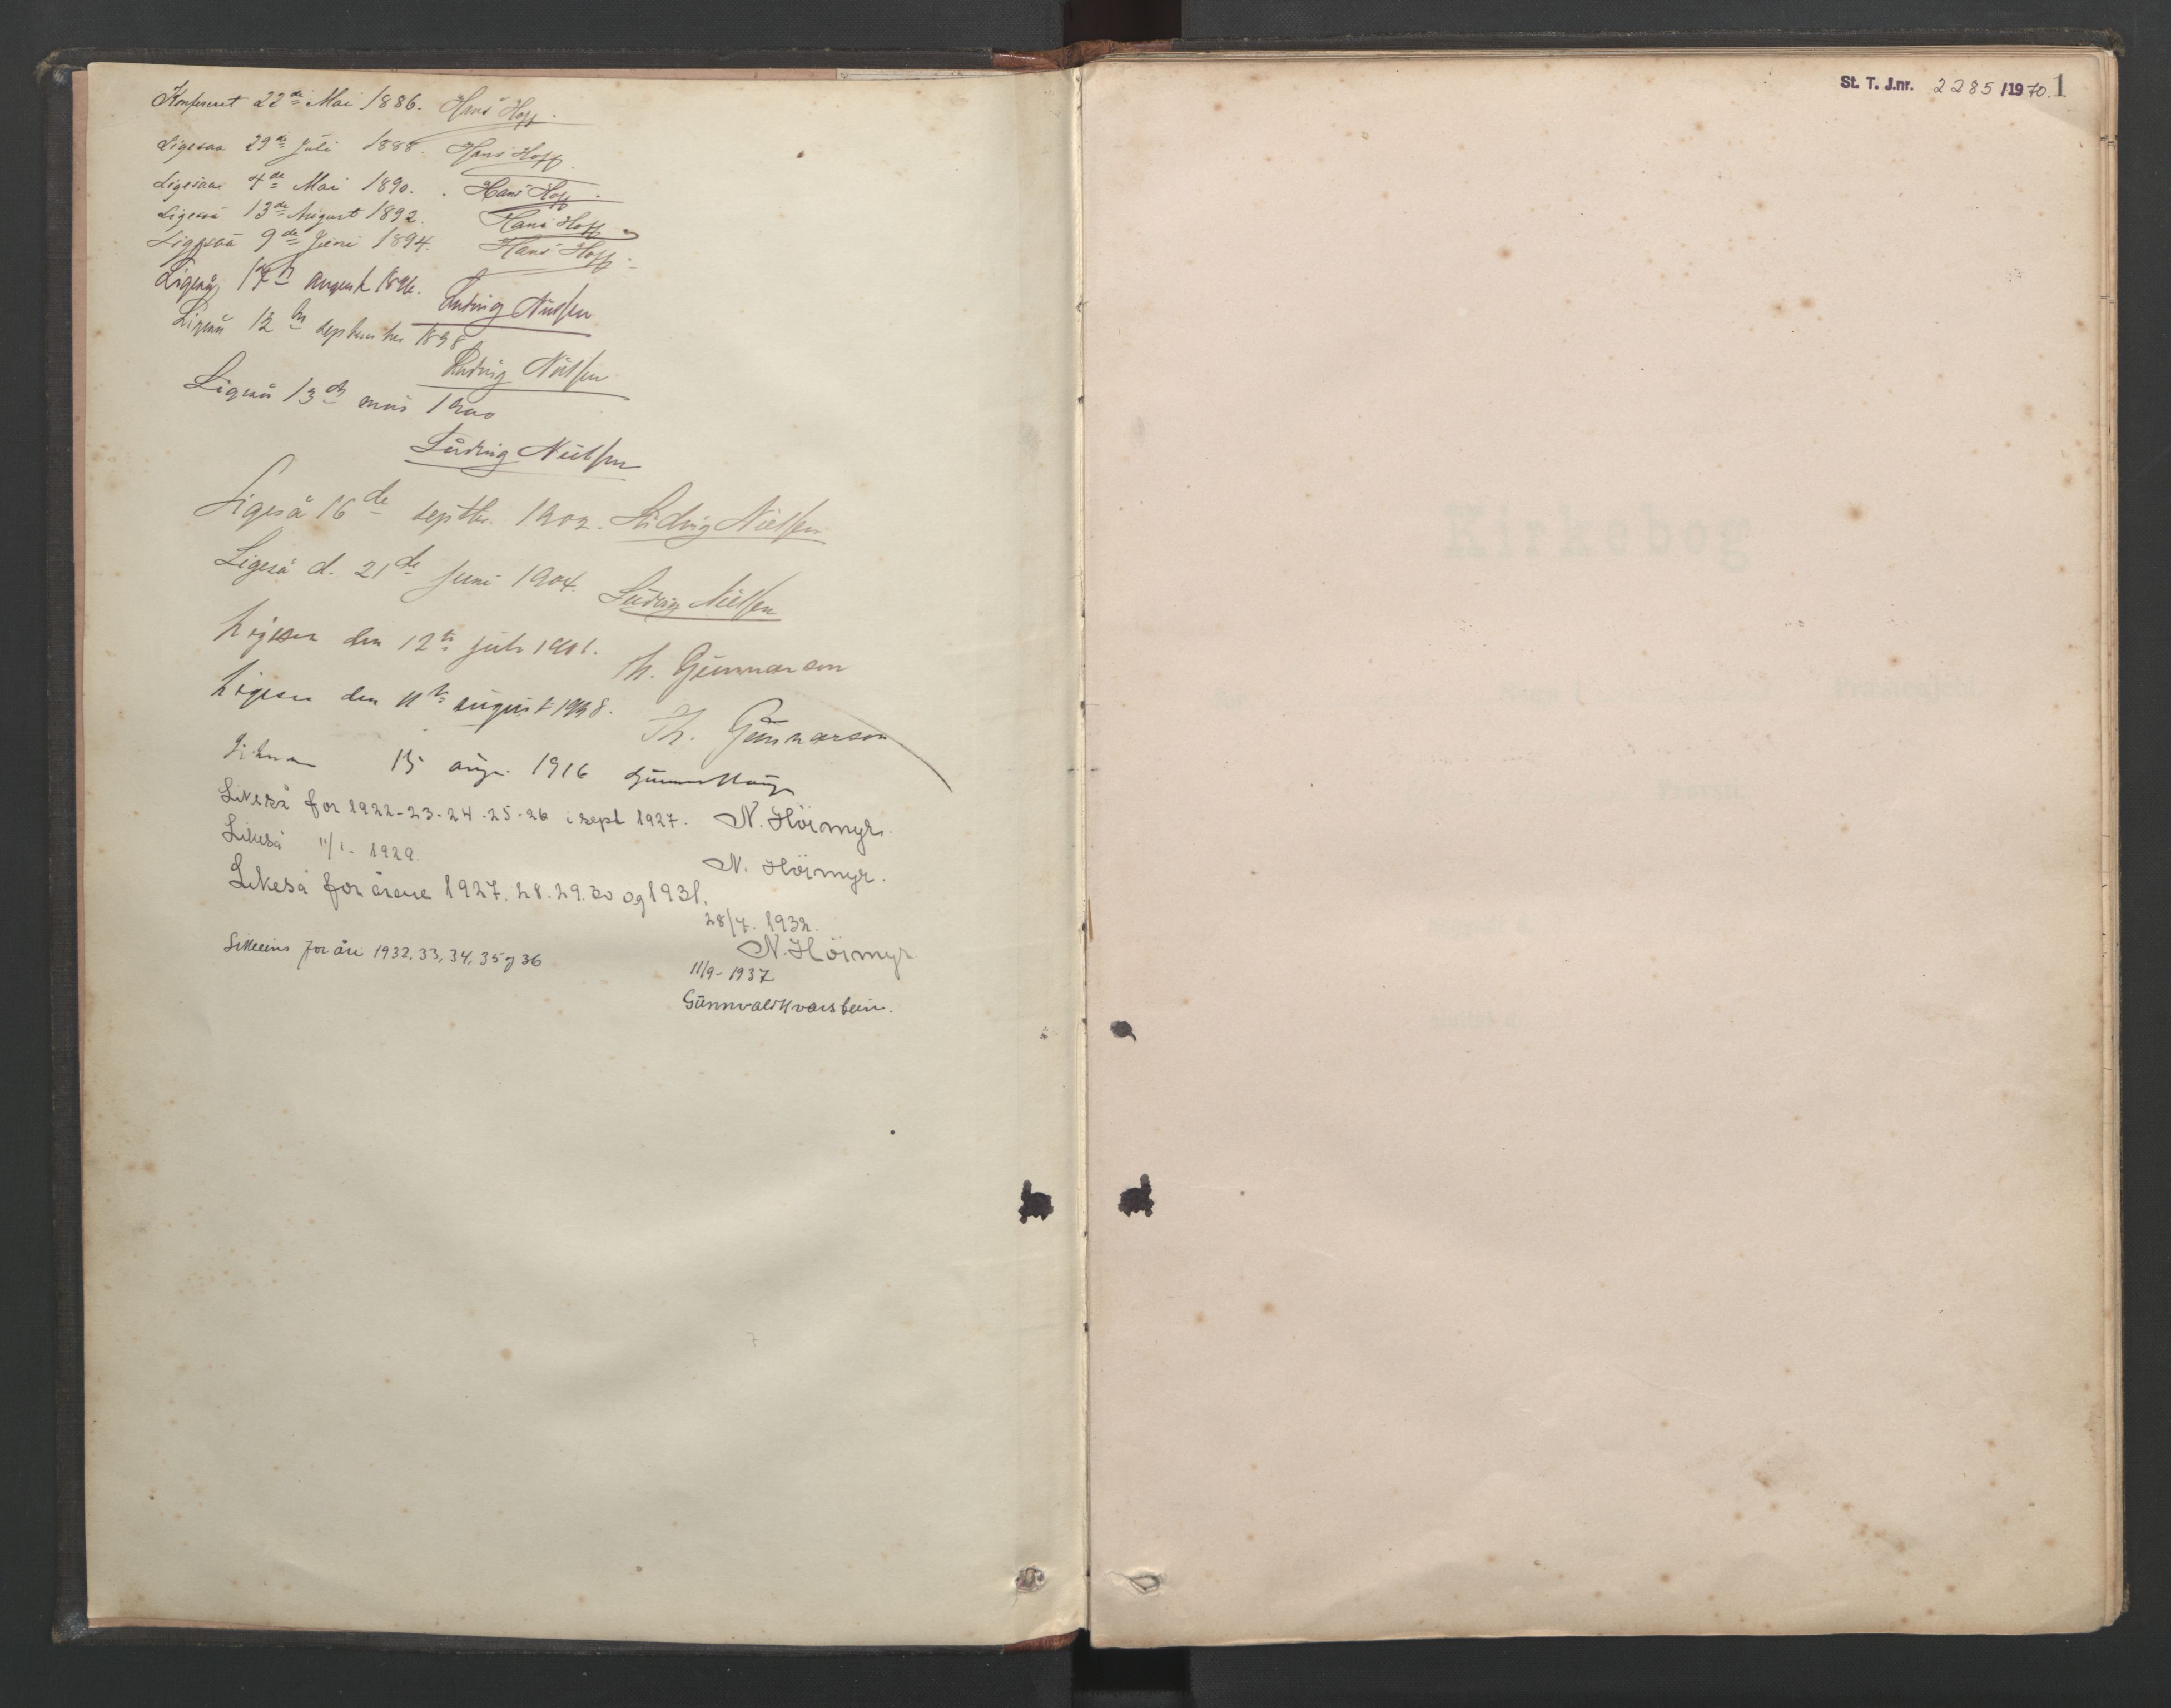 Konfereret 22de Mai 1886. Hans Hoff.
Ligesaa 29de Juli 1888. Hans Hoff.
Ligesaa 4de Mai 1890. Hans Hoff.
Ligesaa 13de August 1892. Hans Hoff
Ligesaa 9de Juni 1894. Hans Hoff.
Ligeså august 1896. Ludvig Nielsen
Ligeså 12te september 1898
Ludvig Nielsen
Ligeså 13de 1900
Ludvig Nielsen
Ligeså 16de septbr. 1902. Ludvig Nielsen
Ligeså d. 21de Juni 1904. Ludvig Nielsen
Ligesaa den 12te juli 1906. Th. Gunnarson
Ligesaa den 11te august 1908. Th. Gunnarson
15 aug. 1916
Likeså for 1922-23-24-25-26 i sept 1927. N. Höimyr.
Likeså 11/1- 1929. N. Höimyr.
Likeså for årene 1927. 28. 29. 30 og 1931.
28/7. 1932.
N. Höimyr
Likeeins for åri 1932, 33, 34, 35 og 36
11/9- 1937
Gunnvald Kvarstein.
St. T. J.nr. 2285/1970. 1
Kirkebog